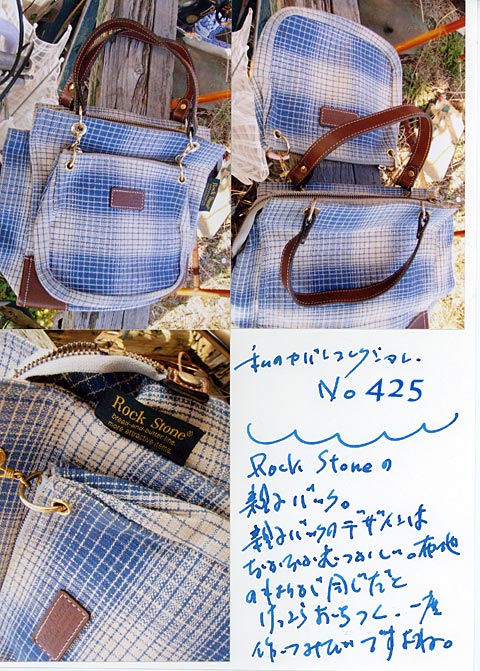 Rock Stone®
bread-and-butter line.
more attractive items.
私のヤバしコレクション.
No 425
Rock Stoneの
親子バック。
親子バックのデザインは
なかなかむつかしい。布地
のまわりが同じだと
けっこうおちつく。一度
作ってみたいですよね。